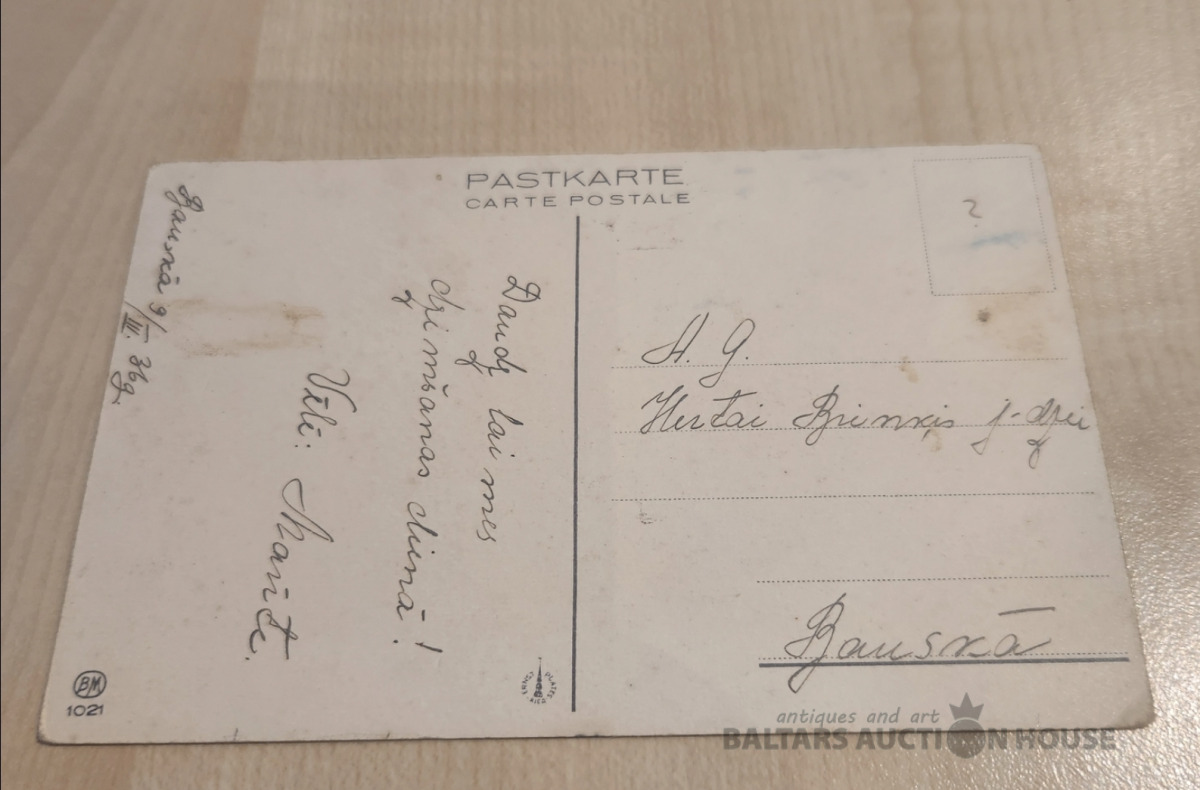 PASTKARTE
CARTE POSTALE
Bauskā 9/III. 36g.
Daudz laimes
dzimšanas dienā!
Vēlē: Marite.
?
A. G.
Hertai Brinkis j-dzei
Bauskā
BM
1021
antiques and art
BALTARS AUCTION HOUSE